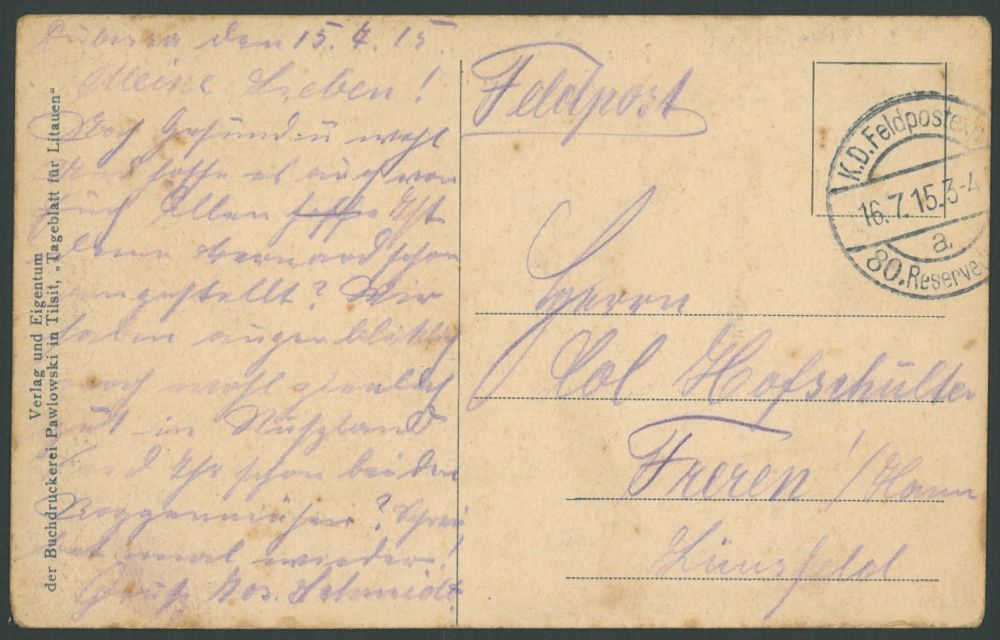 den 15.7.15
Meine Lieben!
Noch Gesund u wohl
Und hoffe es auch von
Euch Allen hoffe Ist
denn Bernard schon
eingestellt? Wir
haben augenblicklich
noch wohl ziemlich
gut in Rußland
Seid Ihr schon bei dem
Roggenmähen? Schrei
bet mal wieder!
Gruß Jos. Schmidt
Verlag und Eigentum
der Buchdruckerei Pawlowski in Tilsit, „Tageblatt für Litauen"
Feldpost
K.D.Feldpostex
16.7.15.3-4
a.
80.Reserve
Herrn
Col Hofschulten
Freren / Hann